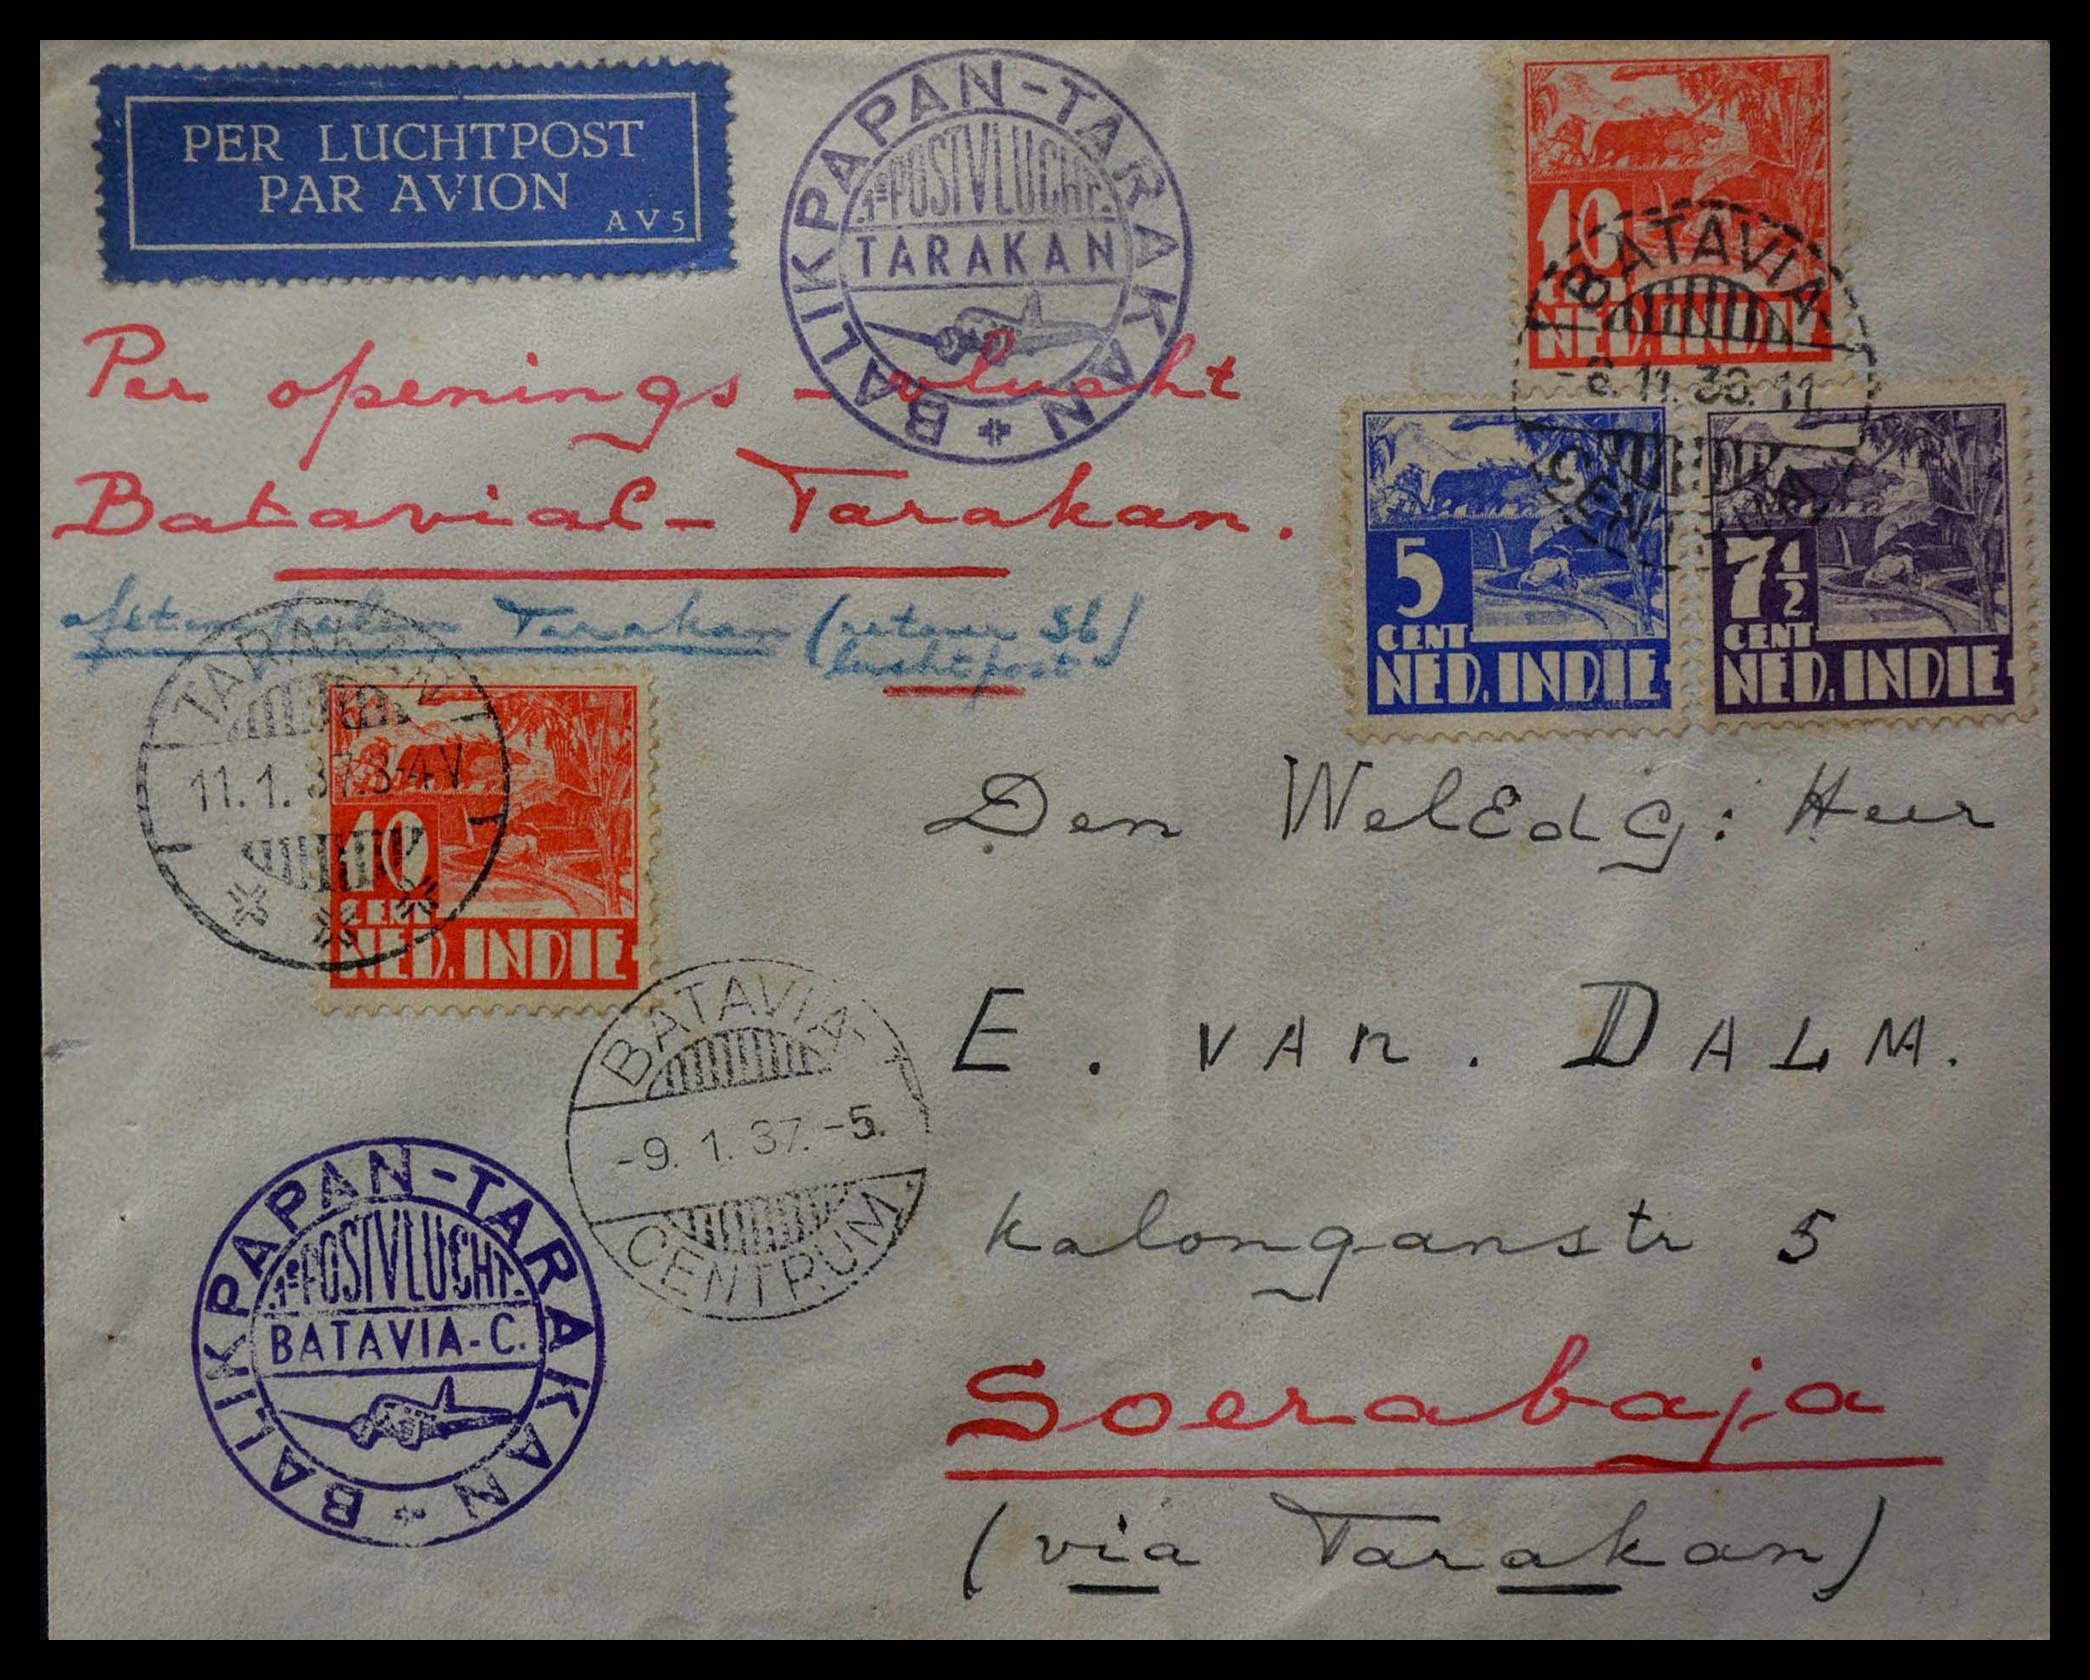 PER LUCHTPOST
PAR AVION
AV5
BALIKPAPAN-TARAKAN
1e POSTVLUCHT.
TARAKAN
10
CENT
NED. INDIE
BATAVIA
11.36.11
CENTRUM
5
CENT
NED. INDIE
7½
CENT
NED. INDIE
Per openings - vlucht
Batavia C - Tarakan.
afstempelen Tarakan (retour Sb)
luchtpost
TARAKAN
11.1.37.3-4V
10
CENT
NED. INDIE
Den WelEdG: Heer
E. van. DALM.
Kalonganstr 5
Soerabaja
(via Tarakan)
BATAVIA
-9.1.37.-5.
CENTRUM
BALIKPAPAN-TARAKAN
1e POSTVLUCHT.
BATAVIA-C.